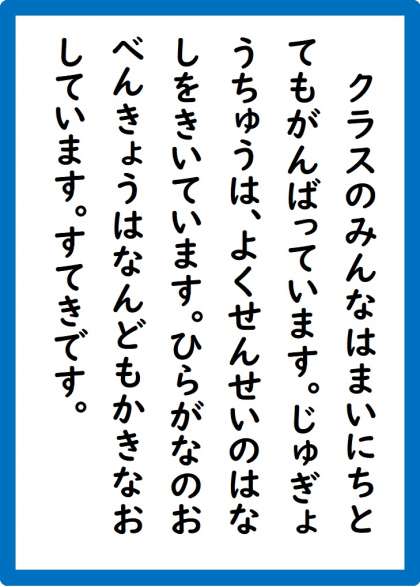 クラスのみんなはまいにちと
てもがんばっています。じゅぎょ
うちゅうは、よくせんせいのはな
しをきいています。ひらがなのお
べんきょうはなんどもかきなお
しています。すてきです。